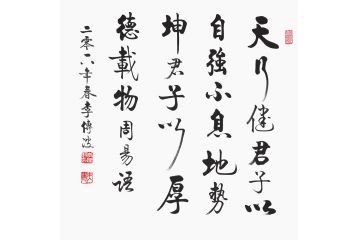 天行健君子以
自強不息地勢
坤君子以厚
德載物周易语
二零一八年春李傳波